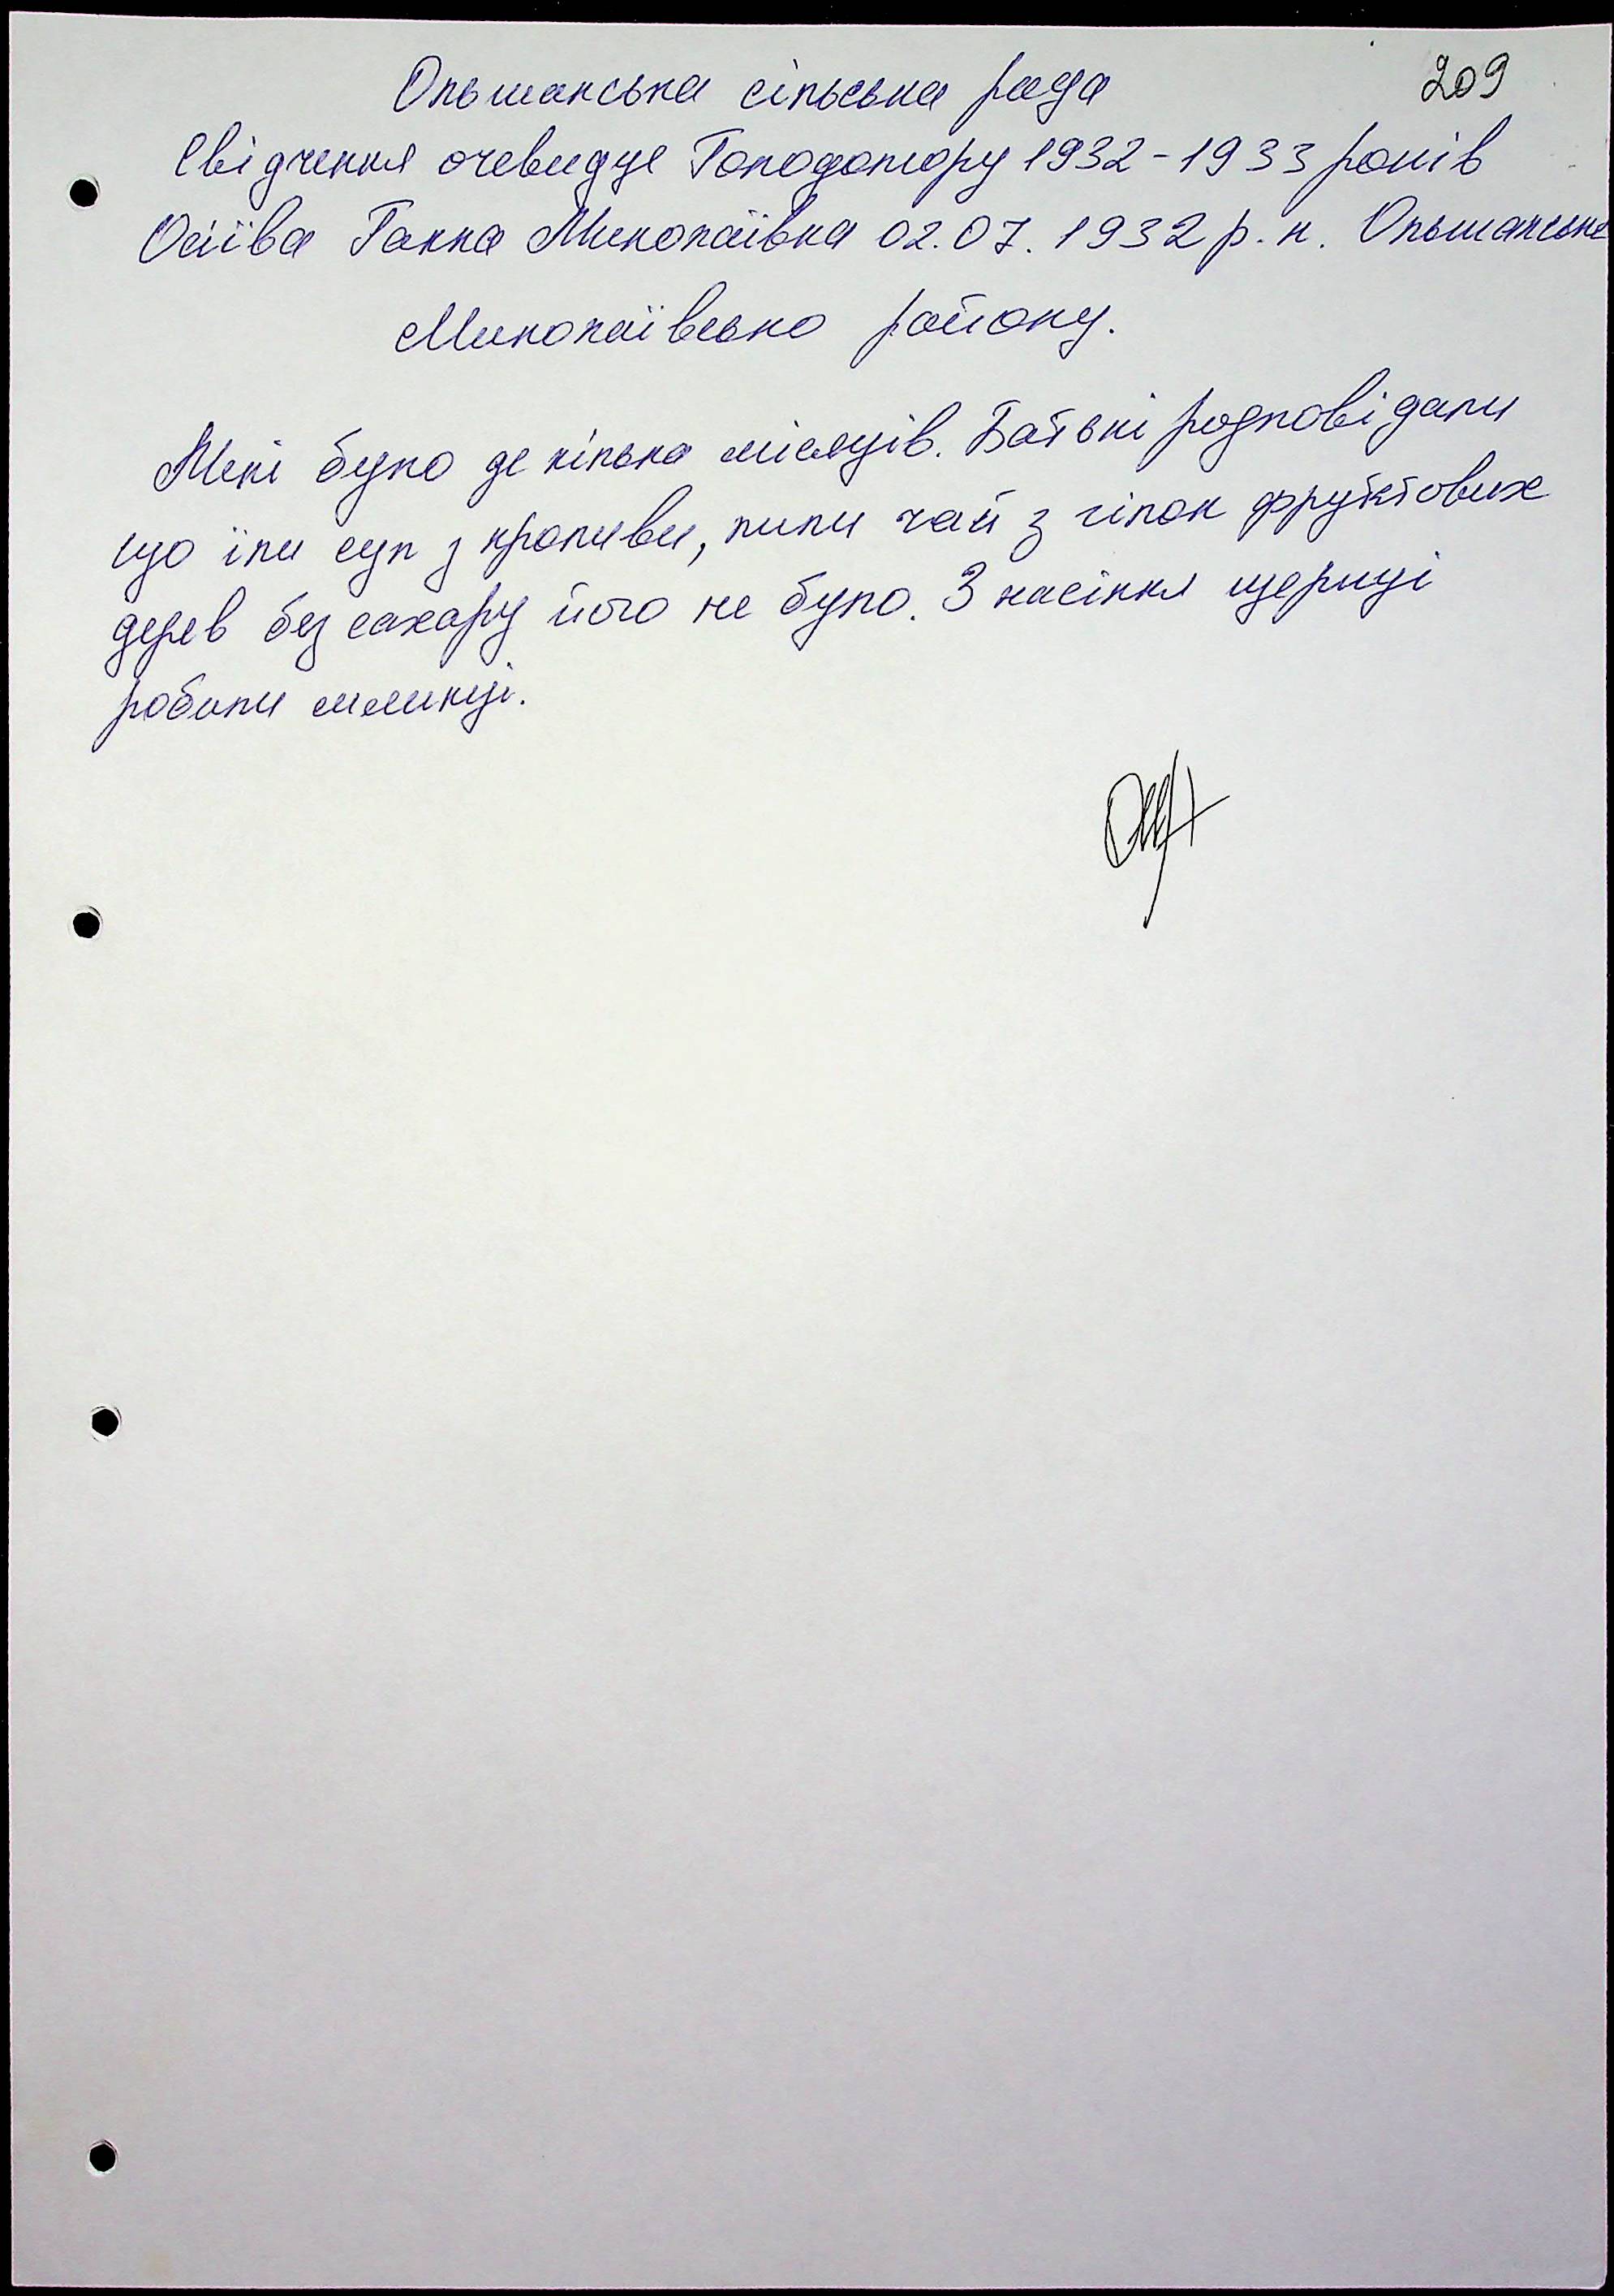 Ольшанська сільська рада 209
Свідчення очевидця Голодомору 1932-1933 років
Осіїва Ганна Миколаївна 02.07.1932 р.н. Ольшанське
Миколаївсько району.
Мені було де кілька місяців. Батькі розповідали
що їли суп з кропиви, пили чай з гілок фруктових
дерев без сахару його не було. З насіння щериці
робили млинці.